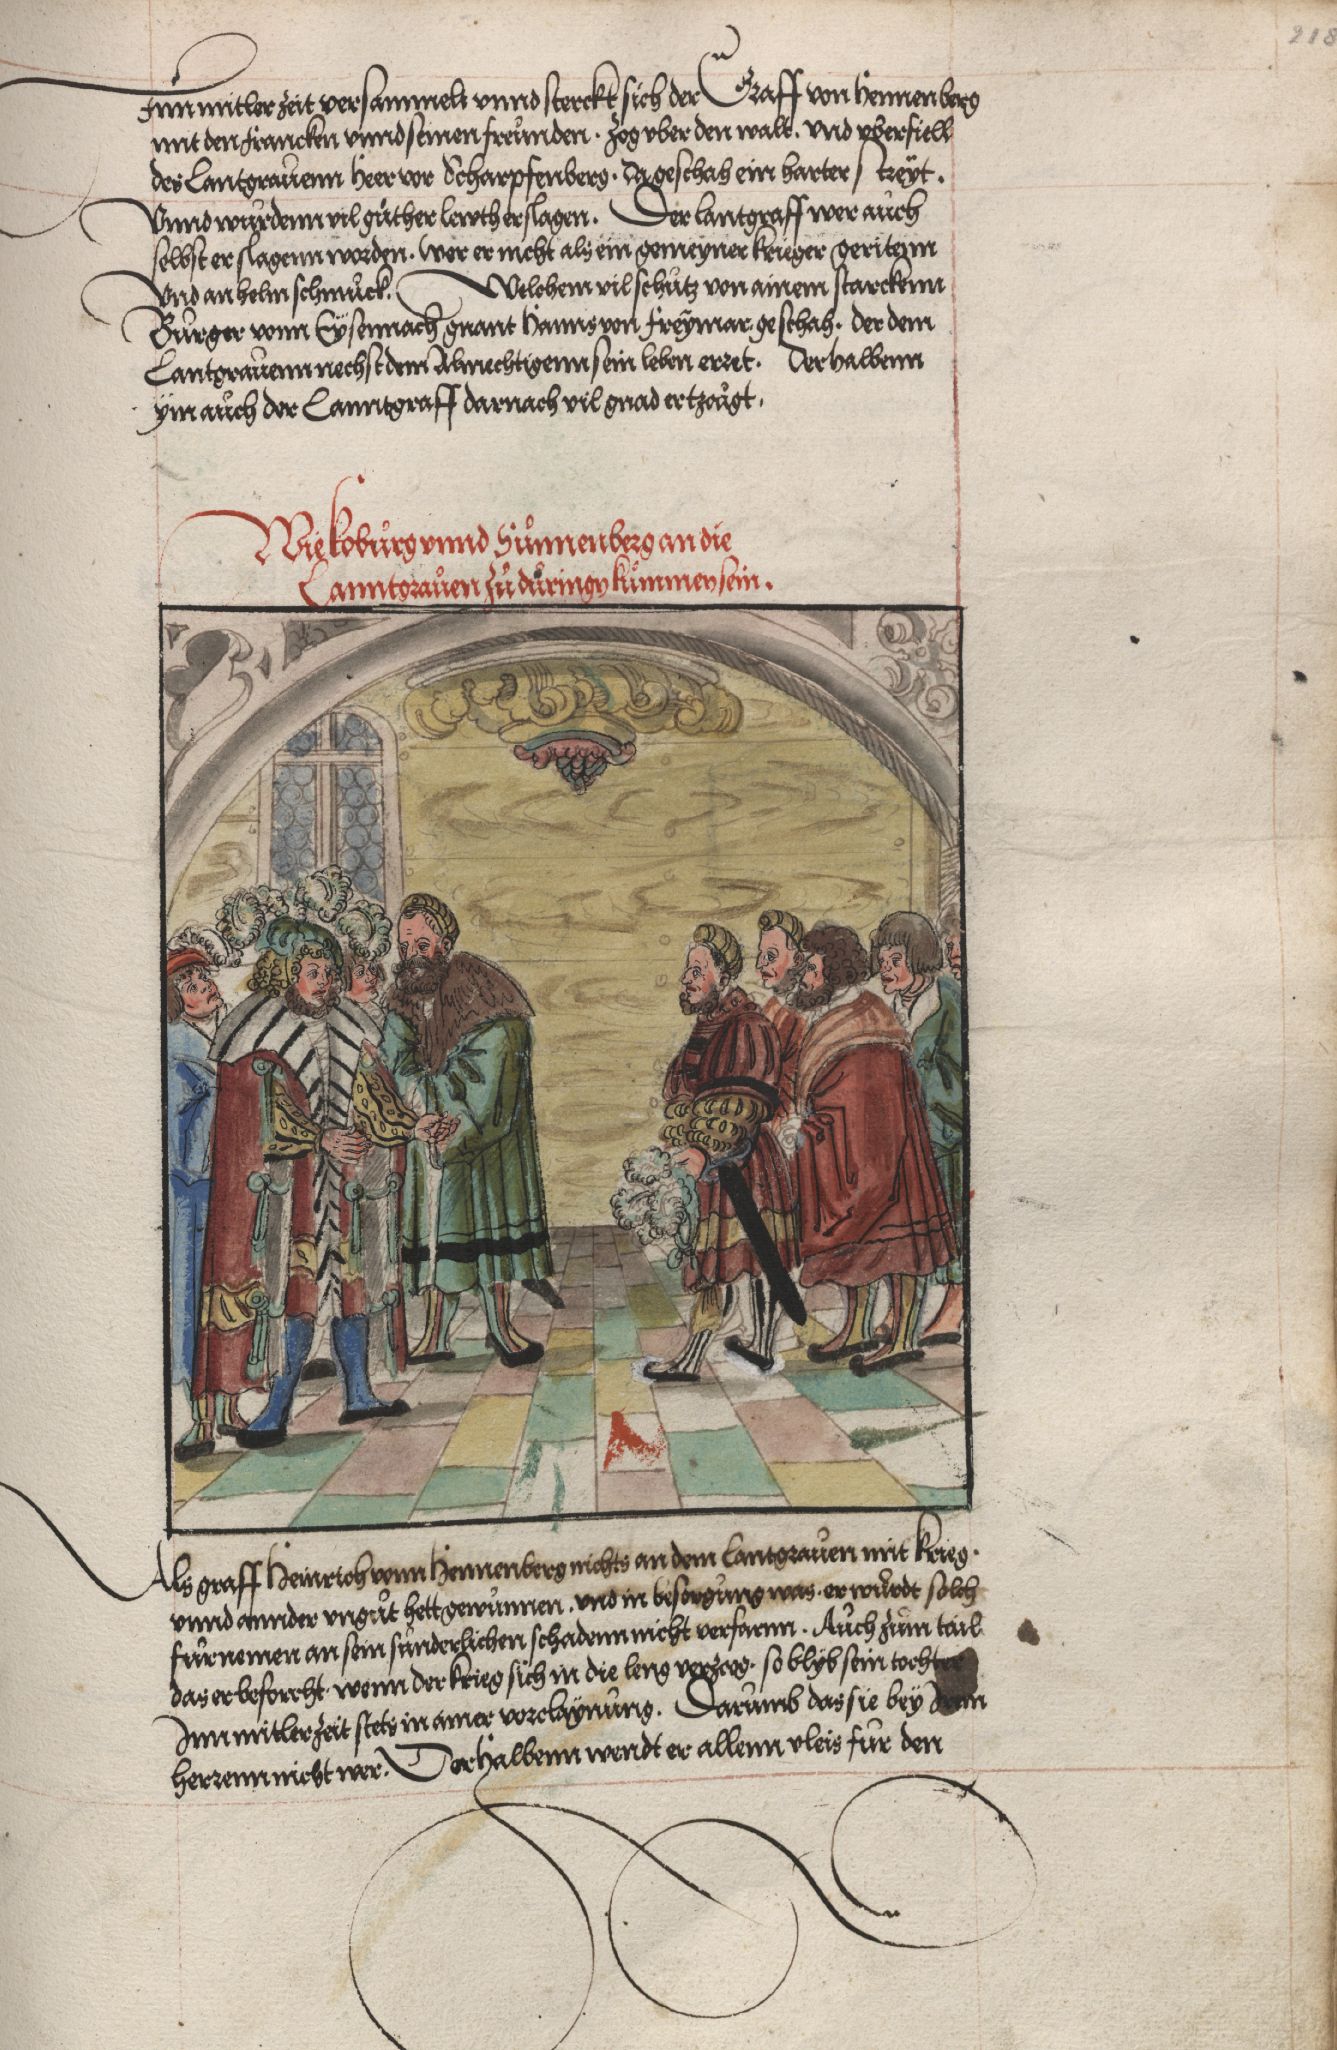 218
Inn mitler zeit versammelt vnnd sterckt sich der Graff von Hennenberg
mit den Francken vnnd seinen freůnden. Zog vber den walt. vnd vberfiell
des Lantgrauenn Heer vor Scharpfenberg. Da geschah ein harter streyt.
Vnnd wurdenn vil gůther lewth erslagen. Der lantgraff wer aůch
selbst erslagenn worden. wer er nicht als ein gemeyner krieger geritenn
Vnd an helm schmůck. Welchem vil schůtz von ainem starckenn
Bůrger vonn Eysennach gnant Hanns von Freymar. geschah. der dem
Lantgrauenn nechst dem Almechtigenn sein leben erret. Derhalbenn
ym aůch der Lanntgraff darnach vil gnad ertzeůgt.
Wie Kobůrg vnnd Sůnnenberg an die
Lanntgraůen zů důringen kůmmen sein.
Als graff Heinrich vonn Hennenberg nichts an dem Lantgraůen mit krieg.
vnnd annder vngůt hett gewůnnen. vnd in besorgůng was. er wůrdt solch
fůrnemen an sein sůnderlichen schadenn nicht verfarnn. Aůch zům tail
das er beforcht. wenn der krieg sich in die leng verzoeg. so blyb sein tochter
Inn mitler zeit stets in ainer verclaynůng. Darůmb das sie bey Irem
herrenn nicht wer. Derhalbenn wendt er allenn vleis fůr den